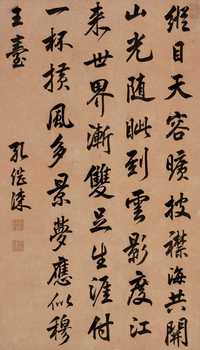 縱目天容曠披襟海共開
山光隨眦到雲影度江
来世界漸雙足生涯付
一杯摸風多景夢應似穆
王臺
孔继涑